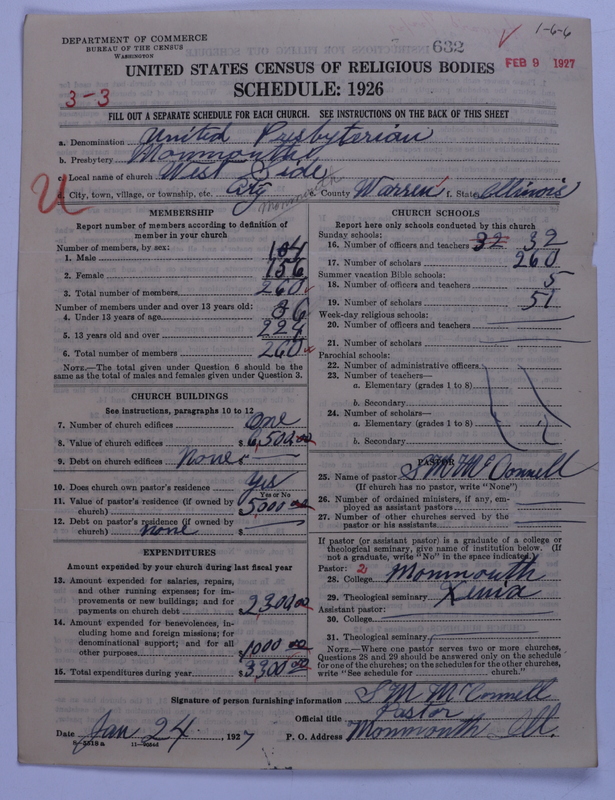 1-6-6
DEPARTMENT OF COMMERCE
BUREAU OF THE CENSUS
WASHINGTON
632
FEB 9 1927
UNITED STATES CENSUS OF RELIGIOUS BODIES
3-3
SCHEDULE: 1926
FILL OUT A SEPARATE SCHEDULE FOR EACH CHURCH. SEE INSTRUCTIONS ON THE BACK OF THIS SHEET
a. Denomination United Presbyterian
b. Presbytery Monmouth
c. Local name of church West Side
d. City, town, village, or township, etc. City Monmouth e. County Warren f. State Illinois
U
MEMBERSHIP
Report number of members according to definition of member in your church
Number of members, by sex:
1. Male 104
2. Female 156
3. Total number of members 260
Number of members under and over 13 years old:
4. Under 13 years of age 36
5. 13 years old and over 224
6. Total number of members 260
NOTE.—The total given under Question 6 should be the same as the total of males and females given under Question 3.
CHURCH BUILDINGS
See instructions, paragraphs 10 to 12
7. Number of church edifices One
8. Value of church edifices $ 6,500.00
9. Debt on church edifices None $
10. Does church own pastor's residence Yes
Yes or No
11. Value of pastor's residence (if owned by church) $ 5,000.00
12. Debt on pastor's residence (if owned by church) None $
EXPENDITURES
Amount expended by your church during last fiscal year
13. Amount expended for salaries, repairs, and other running expenses; for improvements or new buildings; and for payments on church debt $ 2,300.00
14. Amount expended for benevolences, including home and foreign missions; for denominational support; and for all other purposes $ 1000.00
15. Total expenditures during year $ 3,300.00
CHURCH SCHOOLS
Report here only schools conducted by this church
Sunday schools:
16. Number of officers and teachers 32 32
17. Number of scholars 260
Summer vacation Bible schools:
18. Number of officers and teachers 5
19. Number of scholars 51
Week-day religious schools:
20. Number of officers and teachers
21. Number of scholars
Parochial schools:
22. Number of administrative officers
23. Number of teachers—
a. Elementary (grades 1 to 8)
b. Secondary
24. Number of scholars—
a. Elementary (grades 1 to 8)
b. Secondary
PASTOR
25. Name of pastor S M McConnell
(If church has no pastor, write "None")
26. Number of ordained ministers, if any, employed as assistant pastors
27. Number of other churches served by the pastor or his assistants
If pastor (or assistant pastor) is a graduate of a college or theological seminary, give name of institution below. (If not a graduate, write "No" in the space indicated.)
Pastor: 2
28. College Monmouth
29. Theological seminary Xenia
Assistant pastor:
30. College
31. Theological seminary
NOTE.—Where one pastor serves two or more churches, Questions 28 and 29 should be answered only on the schedule for one of the churches; on the schedules for the other churches, write "See schedule for church."
Signature of person furnishing information S M McConnell
Official title Pastor
Date Jan 24, 1927 P. O. Address Monmouth Ill.